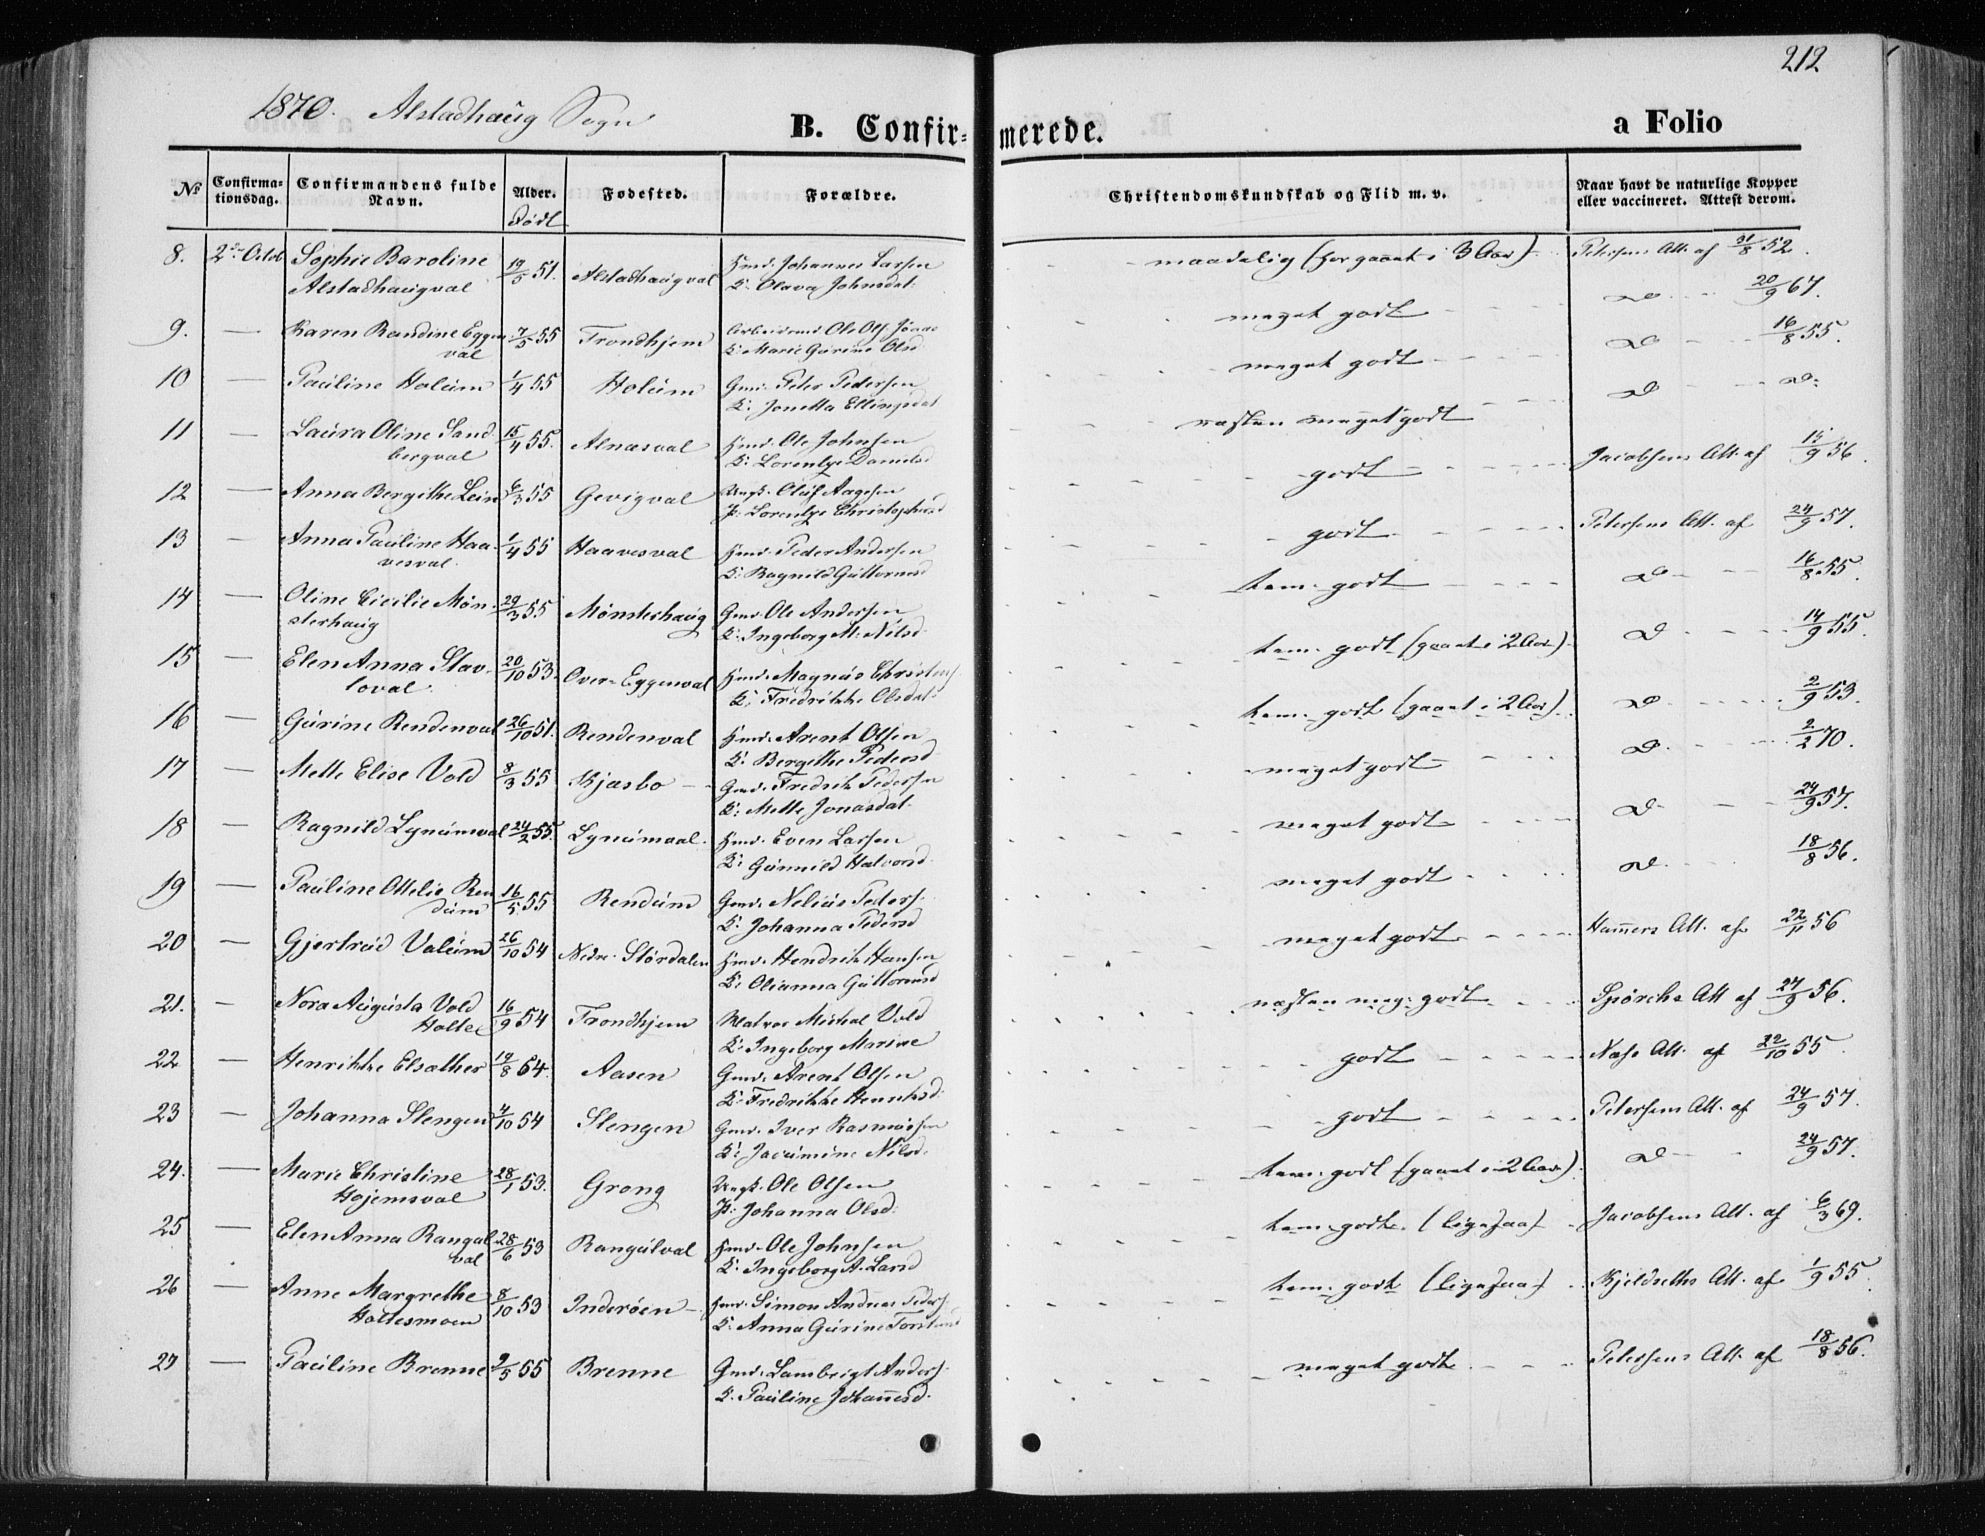 212
1870. Alstadhaug Sogn
B. Confirmerede.
a Folio
№ Confirmationsdag. Confirmandens fulde Navn. Alder. Fødested. Forældre. Christendomskundskab og Flid m. v. Naar havt de naturlige Kopper eller vaccineret. Attest derom.
Født
8. 2den Octob Sophie Baroline 19/5 51. Alstadhaugval Hmd. Johannes Larsen maadelig ( i 3 Aar) Petersens Att. af 31/8 52.
Alstadhaugval K: Olava Johnsdat:
9. — Karen Randine Eggen 7/5 55 Trondhjem Arbeidsmd Ole Ols. meget godt D 20/9 67.
val K: Marie Gurine Olsd
10 — Pauline Holum 1/4 55 Holum Gmd. Peter Pedersen meget godt D 16/8 55.
K: Jonetta Ellingsdat
11 — Laura Oline Sand 15/4 55. Alnæsval Hmd. Ole Johnsen næsten meget godt D D:
bergval K: Lorentze Danielsd
12 — Anna Bergithe Lein 6/3 55 Gevigval Ungk. Oluf Aagesen godt Jacobsens Att. af 15/9 56.
P: Lorentze Christophersd
13 — Anna Pauline Haa- 1/4 55 Haavesval Hmd. Peder Andersen godt Petersens Att. af 24/9 57.
vesval. K: Ragnild Guttormsd
14 — Oline Cicilie Møn- 29/3 55 Mønsterhaug Gmd. Ole Andersen tem: godt D 16/8 55.
sterhaug K: Ingeborg M. Nilsd
15 — Elen Anna Stav- 20/10 53. Over-Eggenval Hmd. Magnus Christens tem: godt (gaaet i 2 Aar) D 14/9 55.
loval. K: Fredrikke Olsdat
16 — Gurine Rendenval 26/10 51. Rendenval Hmd. Arent Olsen tem: godt (gaaet i 2 Aar) D 2/9 53.
K: Bergethe Pedersd
17 — Mette Elise Vold 8/3 55 Kjæsbo Gmd. Fredrik Pedersen meget godt D. 2/2 70.
K: Mette Jonasdat.
18 — Ragnild Lynumval 24/2 55. Lynumaal. Hmd. Even Larsen meget godt D. 24/9 57.
K: Gunnild Halvorsd
19 — Pauline Ottelie Ren 16/5 55 Rendum Gmd. Nelius Peders. meget godt D. 18/8 56.
dum K. Johanna Pedersd
20 — Gjertrud Valum 26/10 54 Nedre Størdalen Hmd. Hendrik Hansen meget godt Hamers Att. af 22/11 56
K: Olianna Guttormsd
21. — Nora Augusta Vold 16/9 54 Trondhjem Matros Michal Vold næsten meg: godt Att af 27/9 56.
Holte K: Ingeborg Marive
22 — Henrikke Elsæther 19/8 54. Aasen Gmd. Arent Olsen godt Næss Att. af 22/10 55
K: Fredrikke Henriksd
23 — Johanna Slengen 4/10 54 Slengen Gmd. Iver Rasmusen godt Petersens Att. af 24/9 57.
K: Jacumine Nilsd.
24. — Marie Christine 28/1 53. Grong Ungk. Ole Olsen tem: godt (gaaet i 2 Aar) D 24/9 57.
Hojemsval P: Johanna Olsd.
25 — Elen Anna Rangul 28/6 53 Rangulval Hmd. Ole Johnsen tem: godt (ligesaa) Jacobsens Att. af 6/3 69.
val K. Ingeborg A. Larsd
26 — Anne Margrethe 8/10 53 Inderøen Hmd. Simon Andreas Peders. tem: godt (ligesaa) Kjeldseths Att. af 1/9 55.
Holtesmoen K: Anna Gurine
27 — Pauline Brenne 9/5 55 Brenne Gmd. Lambrigt Anders. meget godt Petersens Att. af 18/8 56.
K. Pauline Johannesd.